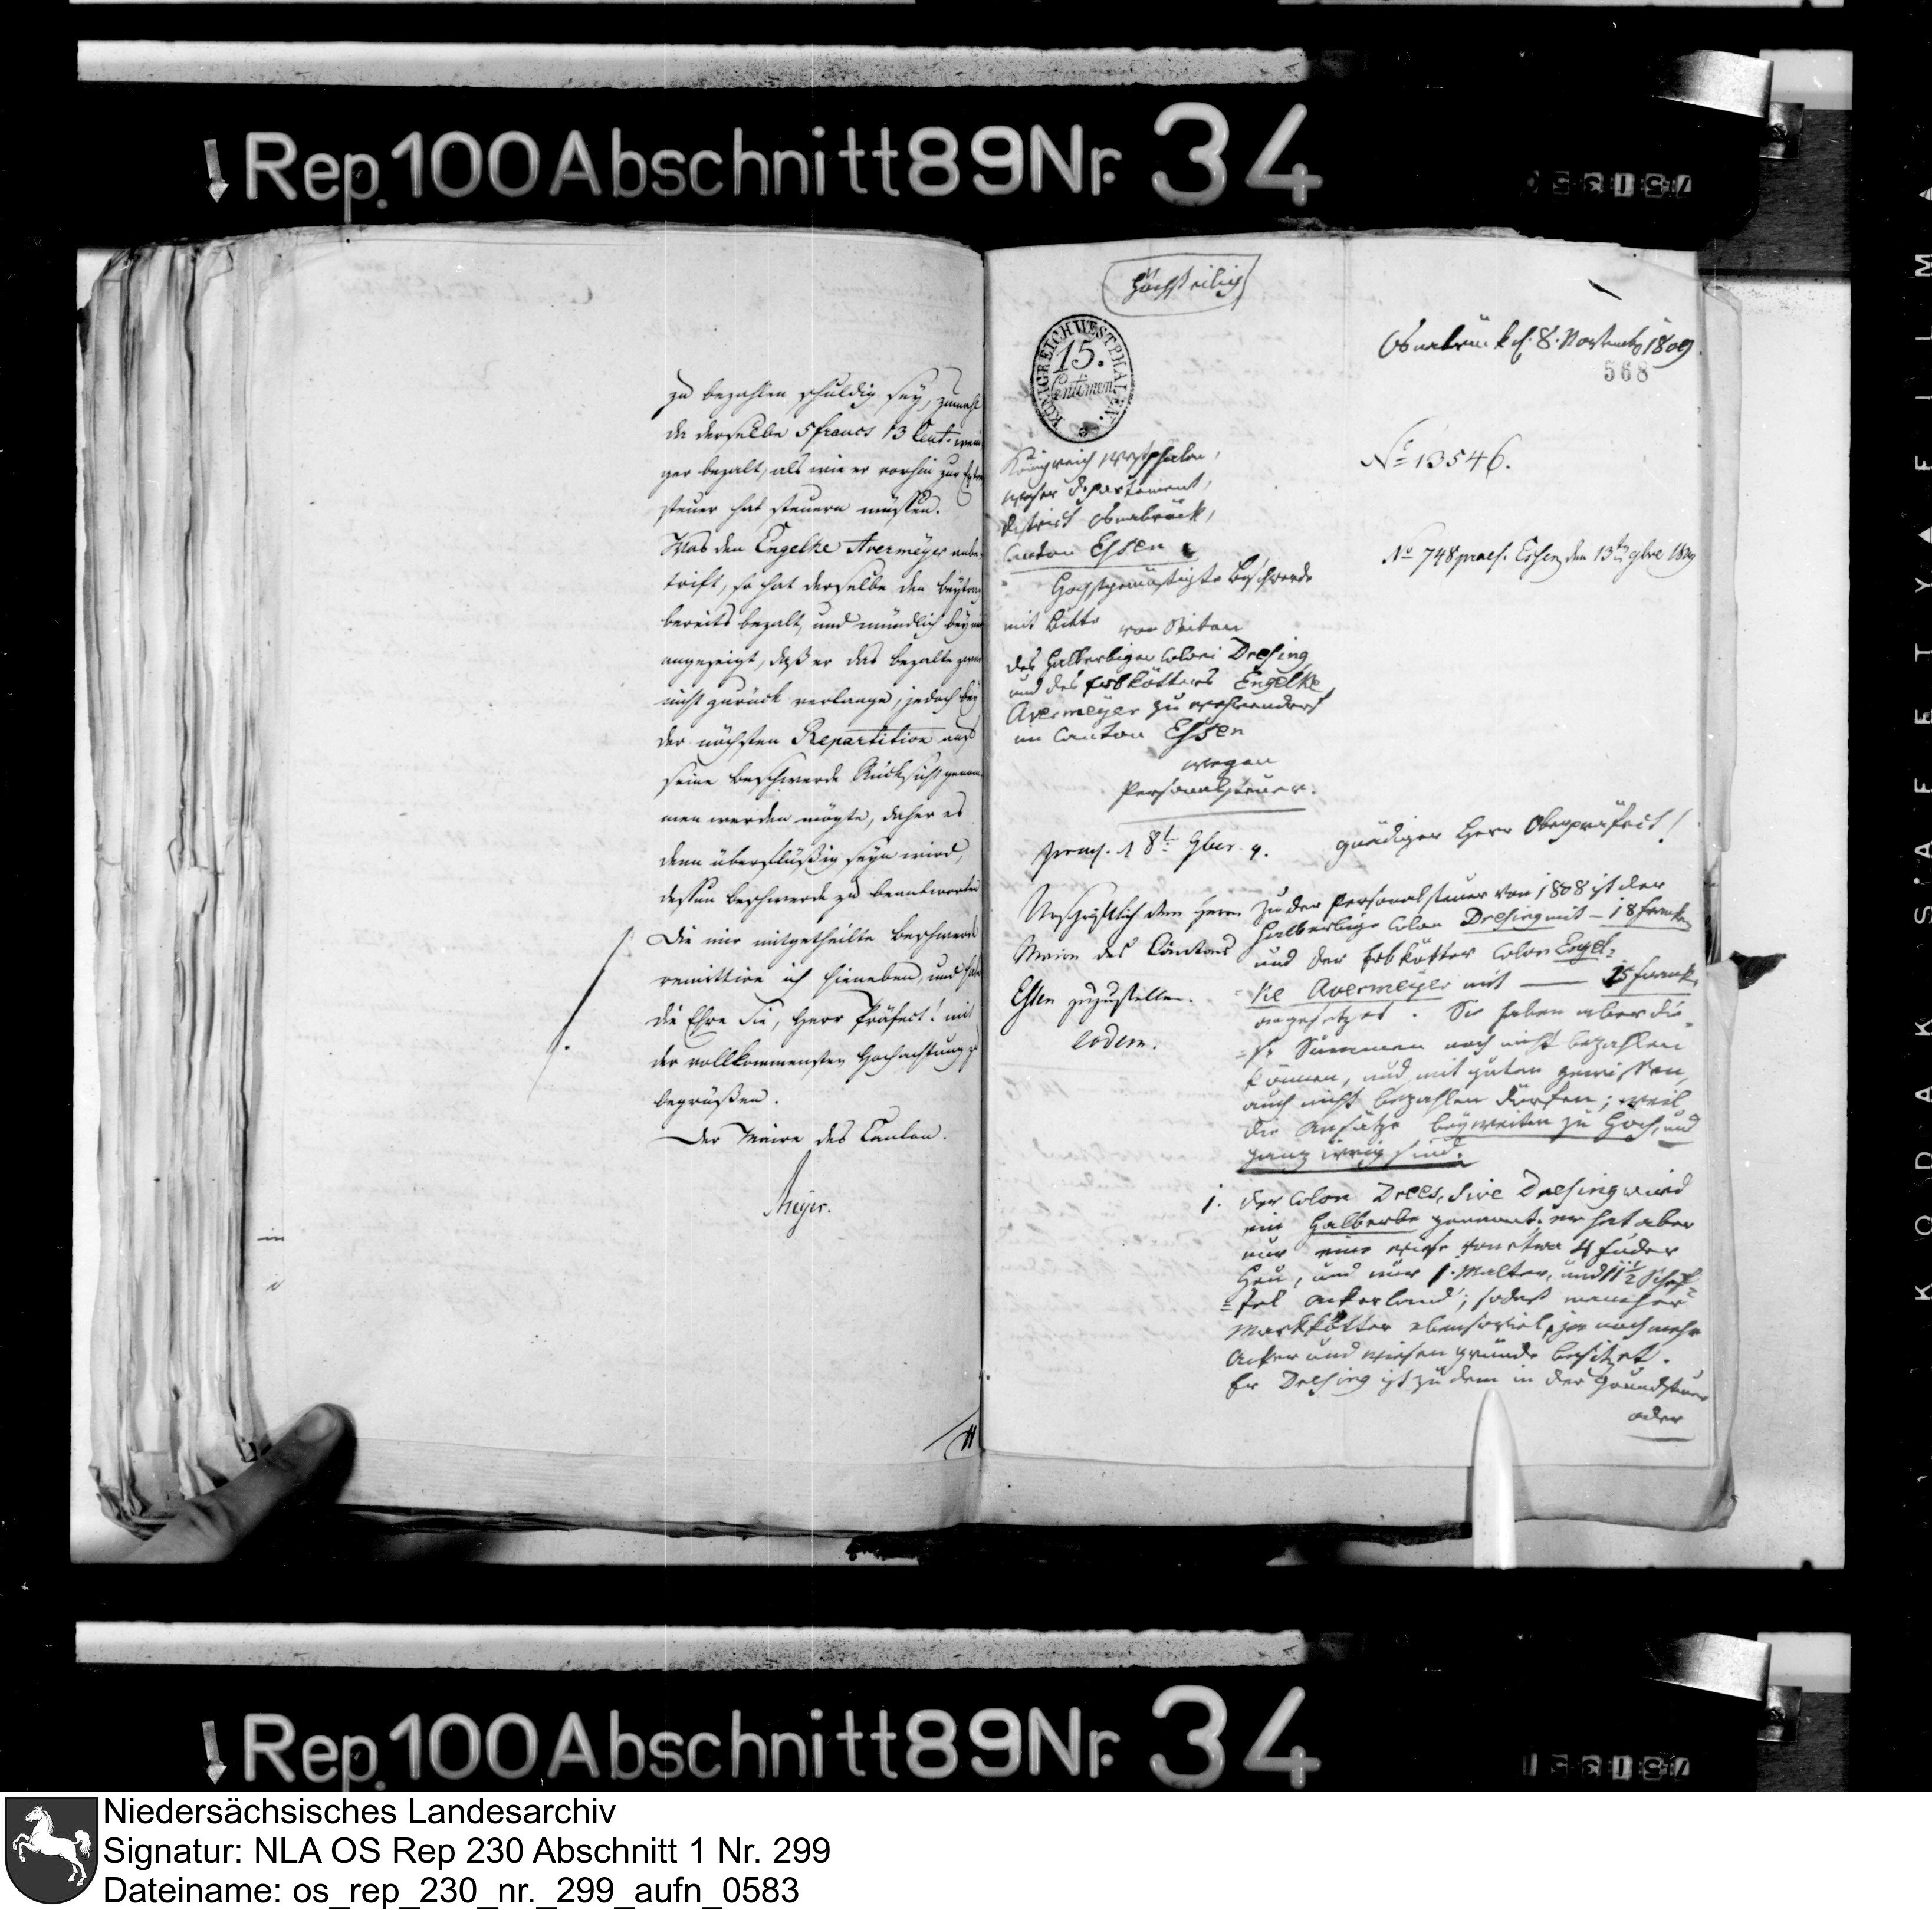 Rep. 100 Abschnitt 89 Nr. 34
zu bezahlen schuldig sey, zumahl
da derselbe 5 francs 13 Cent. weni
ger bezalt, als wie er vorhin zur
steuer hat steuern müssen.
Was den Engelke Avermeyer anbe-
trift, so hat derselbe den Beytrag
bereits bezalt, und mündlich bey mir
angezeigt, daß er das bezalte zwar
nicht zurück verlange, jedoch bey
der nächsten Repartition auf
seine Beschwerde Rücksicht genom
men werden mögte, daher es
denn überflüßig seyn wird,
dessen Beschwerde zu beantworten
Die mir mitgetheilte Beschwerde
remittire ich hieneben, und habe
die Ehre Sie, Herr Präfect! mit
der vollkommensten Hochachtung zu
begrüßen.
Der Maire des Canton.
Meyer.
Höchst eilig
KÖNIGREICH WESTPHALEN.
15.
Centimen
Osnabrück d. 8. November 1809
568
No 13546.
No 748 praes. Essen den 13ten 9bre 1809
Königreich Westphalen,
Weser Departement,
District Osnabrück,
Canton Essen
Höchstgemüßigte Beschwerde
mit Bitte von Seiten
des Halberbigen Coloni Dresing
und des Erbkötters Engelke
Avermeyer zu Wehrendorf
im Canton Essen
wegen
Personalsteuer.
praes. d 8t 9br. 9.
Urschriftlich dem Herrn
Maire des Cantons
Essen zuzustellen.
eodem.
Gnädiger Herr Oberpräfect!
Zu der Personalsteuer von 1808 ist der
Halberbige Colon Dresing mit – 18 Franken
und der Erbkötter Colon Engel-
ke Avermeyer mit — 15 Frank.
angesetzet. Sie haben aber die-
se Summen noch nicht bezahlen
können, und mit guten Gewissen,
auch nicht bezahlen dürfen; weil
die Ansätze bey weiten zu hoch, und
ganz irrig sind.
1. Der Colon Drees, sive Dresing wird
ein Halberbe genannt. er hat aber
nur eine Wiese von etwa 4 Fuder
Heu, und nur 1. Malter, und 11 1/2 Schef-
fel Ackerland; sodaß mancher
Markkötter ebensoviel, ja noch mehr
Acker und Wiesengründe besitzet.
Er Dresing ist zu dem in der Grundsteuer
oder
Rep. 100 Abschnitt 89 Nr. 34
KODAK SAFETY FILM
Niedersächsisches Landesarchiv
Signatur: NLA OS Rep 230 Abschnitt 1 Nr. 299
Dateiname: os_rep_230_nr._299_aufn_0583